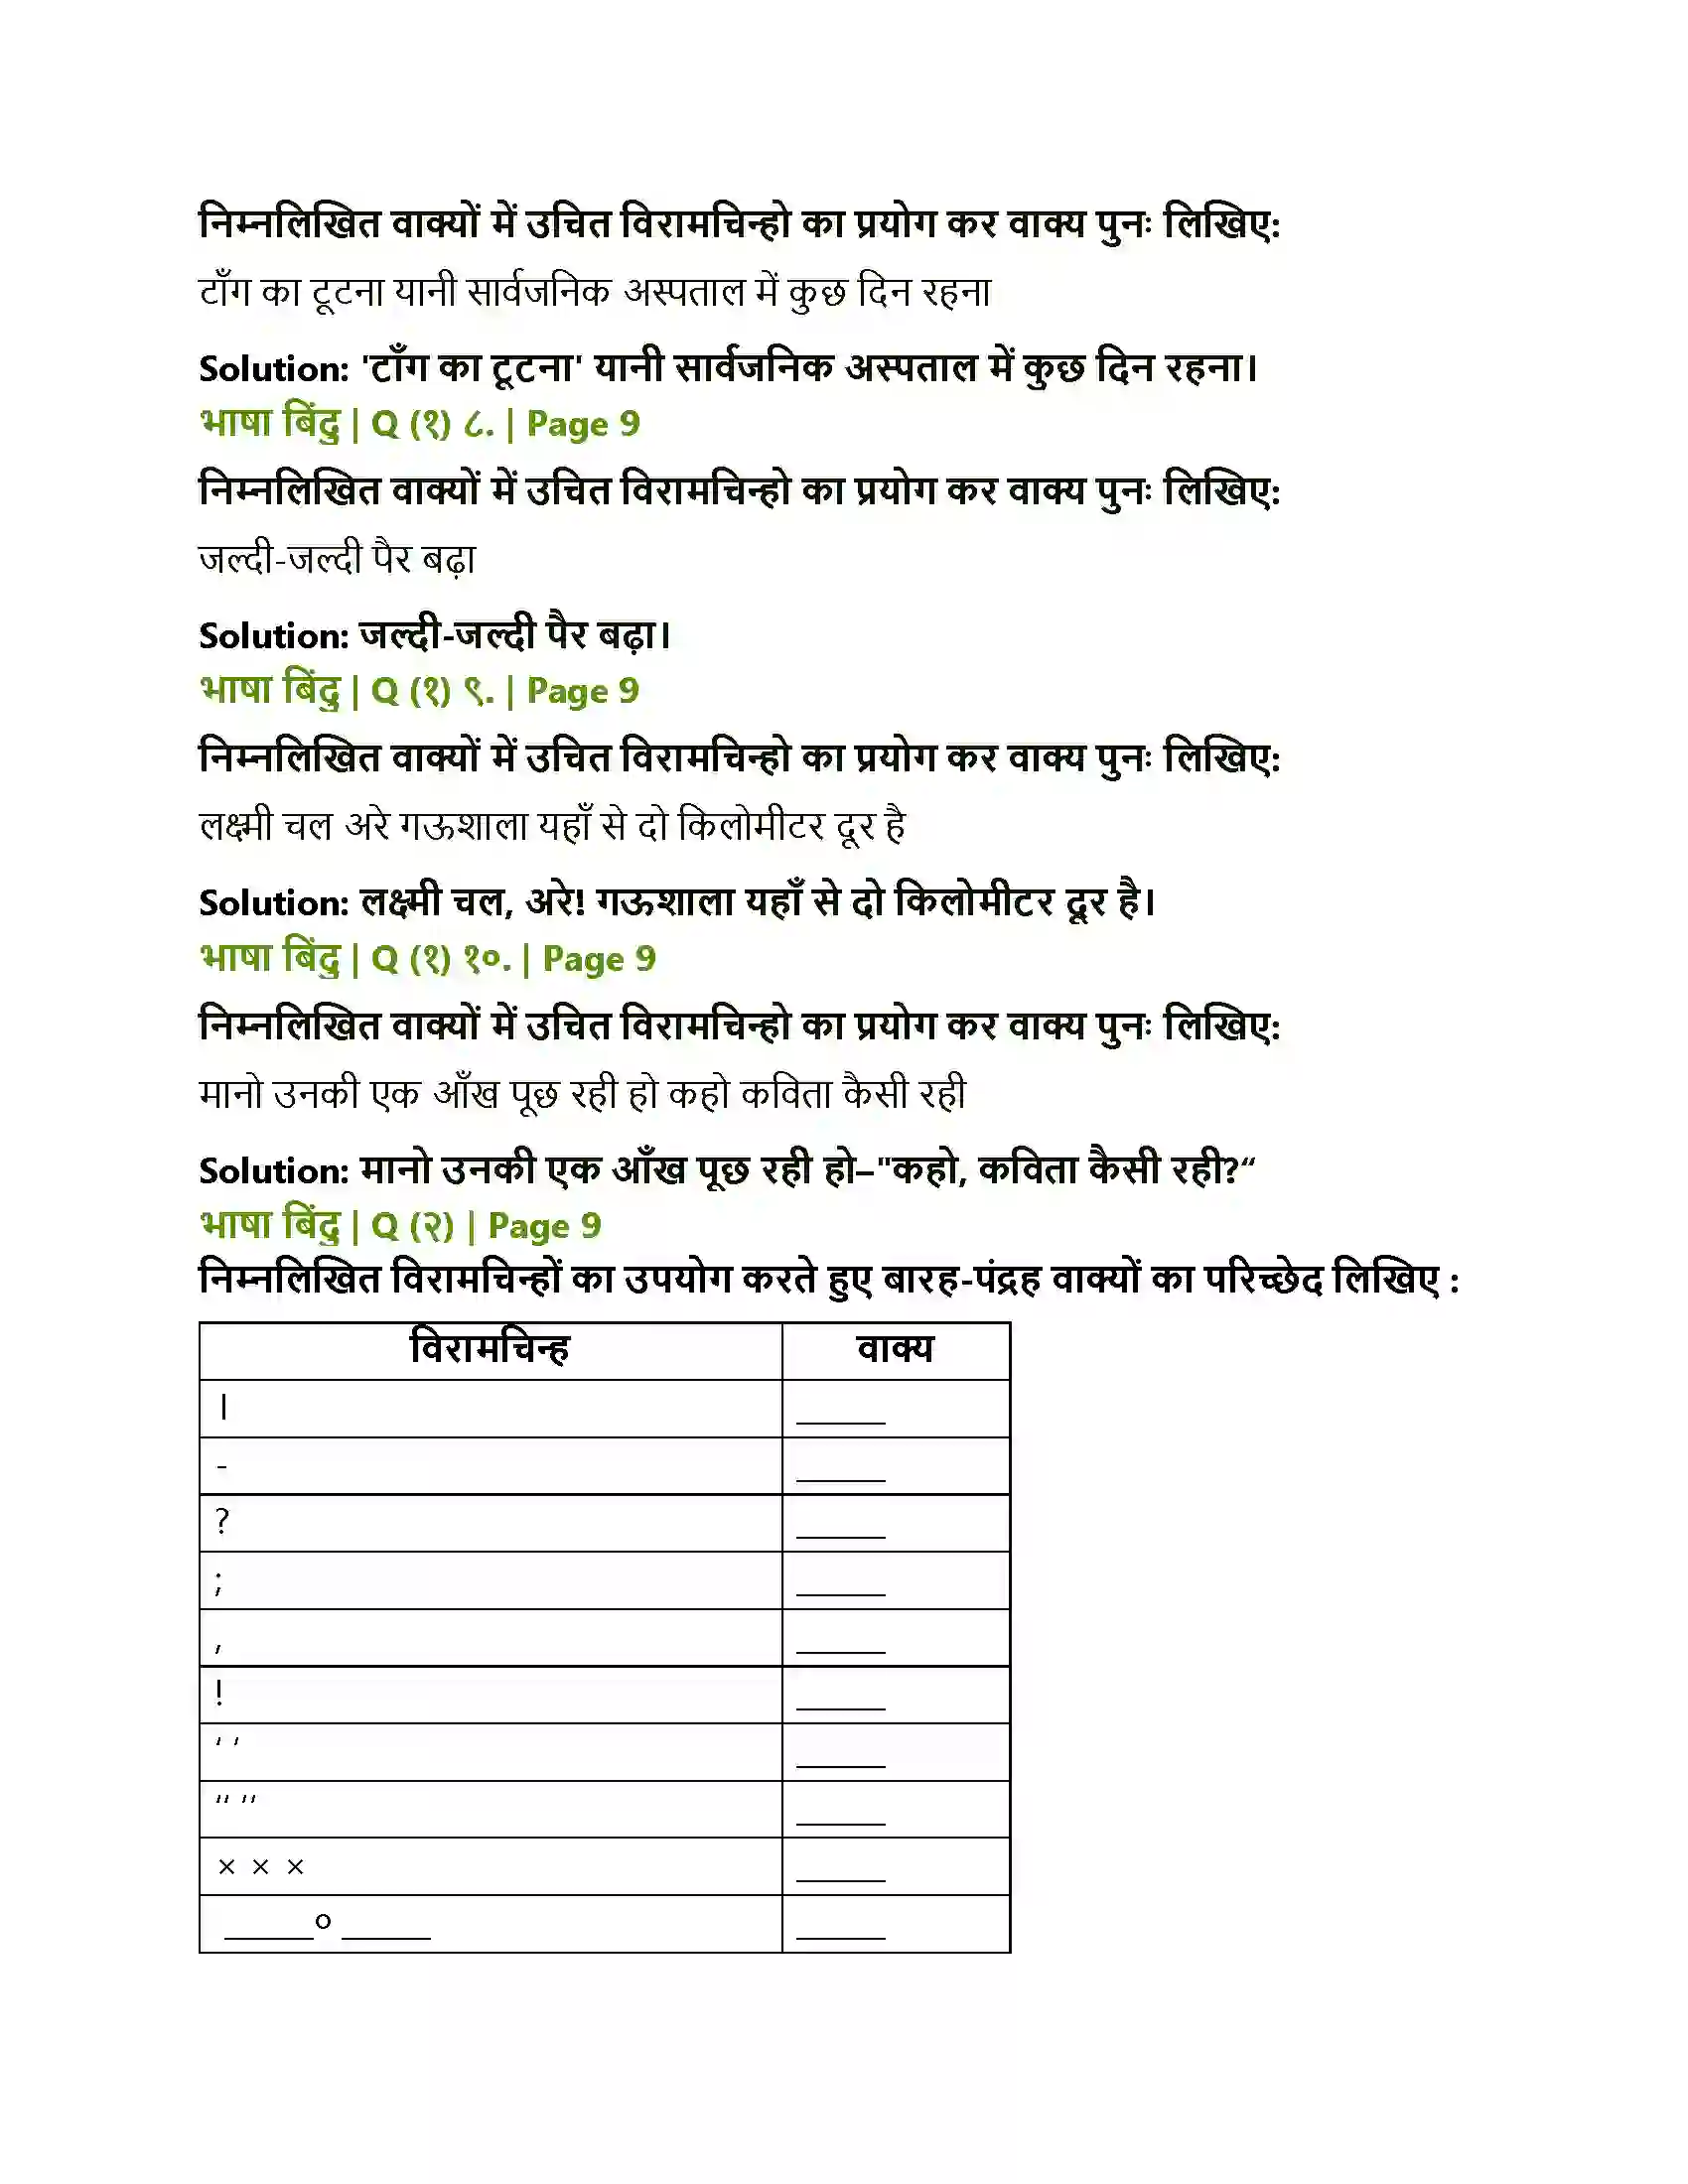 निम्नलिखित वाक्यों में उचित विरामचिन्हो का प्रयोग कर वाक्य पुनः लिखिए:
टाँग का टूटना यानी सार्वजनिक अस्पताल में कुछ दिन रहना
Solution: 'टाँग का टूटना' यानी सार्वजनिक अस्पताल में कुछ दिन रहना।
भाषा बिंदु | Q (१) ८. | Page 9
निम्नलिखित वाक्यों में उचित विरामचिन्हो का प्रयोग कर वाक्य पुनः लिखिए:
जल्दी-जल्दी पैर बढ़ा
Solution: जल्दी-जल्दी पैर बढ़ा।
भाषा बिंदु | Q (१) ९. | Page 9
निम्नलिखित वाक्यों में उचित विरामचिन्हो का प्रयोग कर वाक्य पुनः लिखिए:
लक्ष्मी चल अरे गऊशाला यहाँ से दो किलोमीटर दूर है
Solution: लक्ष्मी चल, अरे! गऊशाला यहाँ से दो किलोमीटर दूर है।
भाषा बिंदु | Q (१) १०. | Page 9
निम्नलिखित वाक्यों में उचित विरामचिन्हो का प्रयोग कर वाक्य पुनः लिखिए:
मानो उनकी एक आँख पूछ रही हो कहो कविता कैसी रही
Solution: मानो उनकी एक आँख पूछ रही हो–"कहो, कविता कैसी रही?“
भाषा बिंदु | Q (२) | Page 9
निम्नलिखित विरामचिन्हों का उपयोग करते हुए बारह-पंद्रह वाक्यों का परिच्छेद लिखिए :
विरामचिन्ह वाक्य
। _____
- _____
? _____
; _____
, _____
! _____
‘ ’ _____
‘‘ ’’ _____
× × × _____
_____० _____ _____